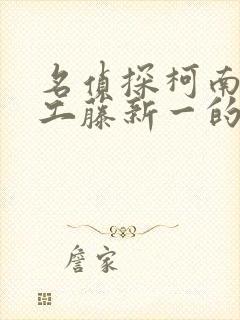 名侦探柯南
工藤新一的
詹家